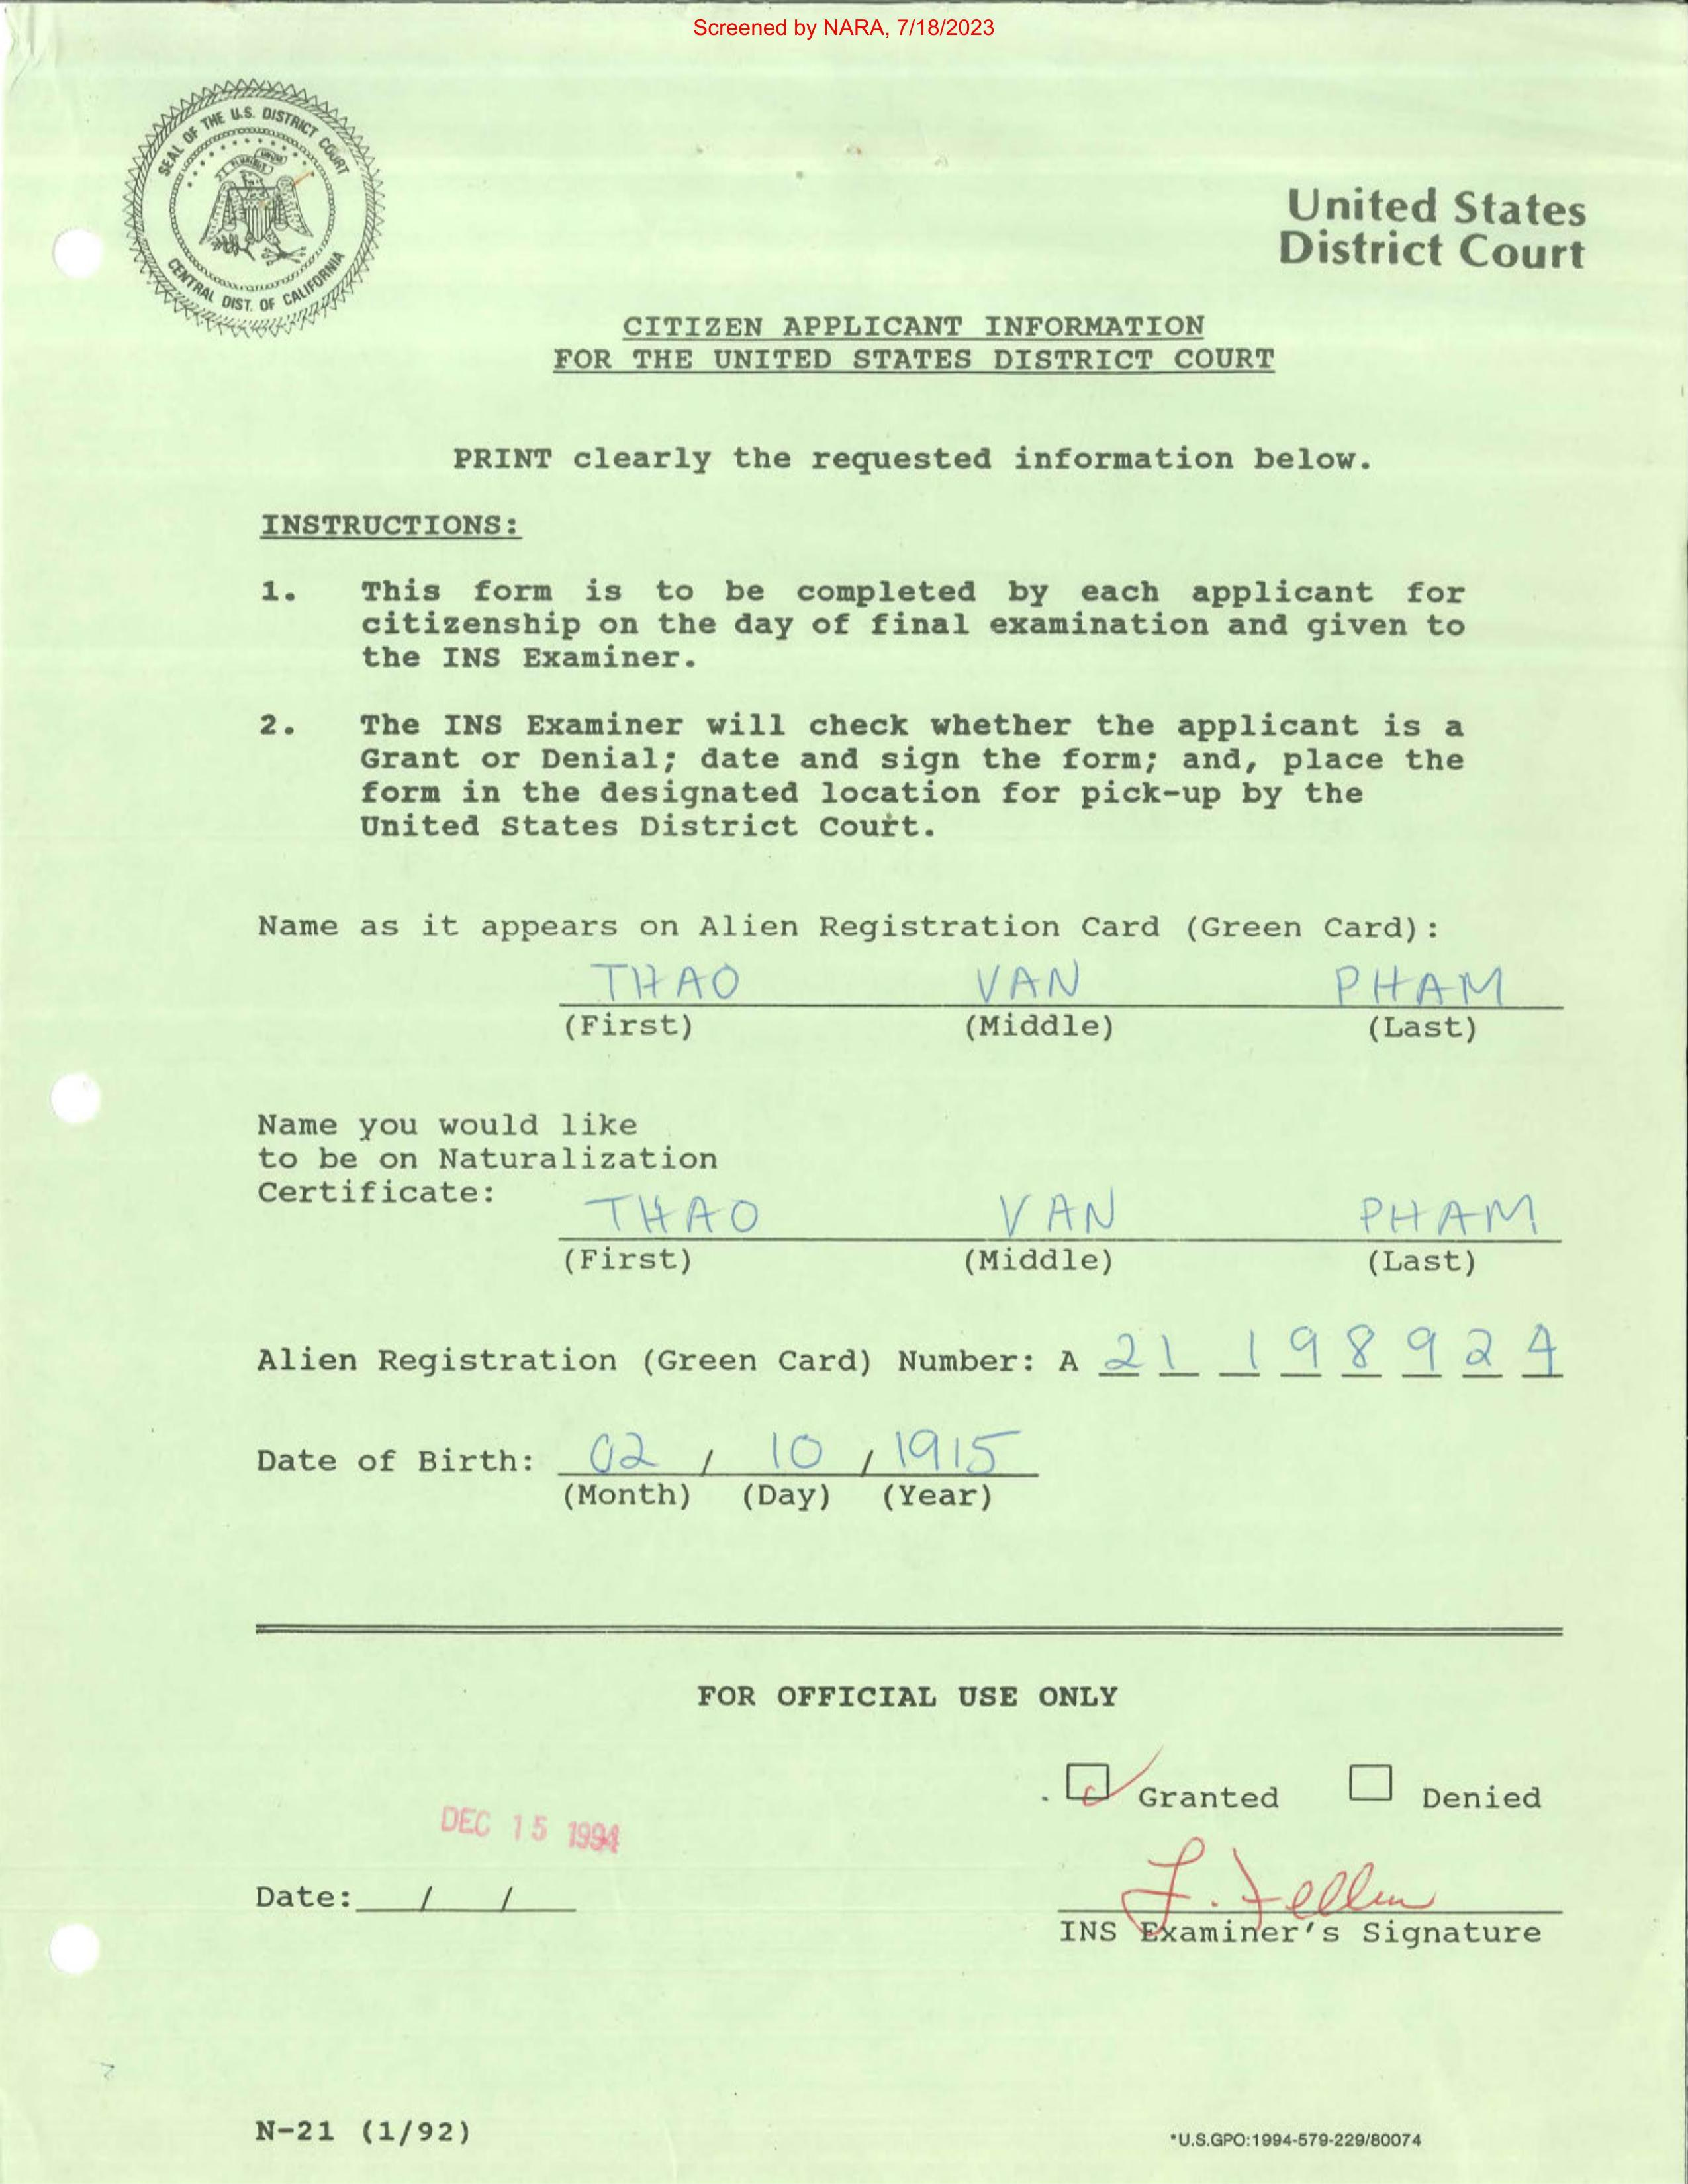 Screened by NARA, 7/18/2023
SEAL OF THE U.S. DISTRICT COURT
CENTRAL DIST. OF CALIFORNIA
United States
District Court
CITIZEN APPLICANT INFORMATION
FOR THE UNITED STATES DISTRICT COURT
PRINT clearly the requested information below.
INSTRUCTIONS:
1. This form is to be completed by each applicant for
citizenship on the day of final examination and given to
the INS Examiner.
2. The INS Examiner will check whether the applicant is a
Grant or Denial; date and sign the form; and, place the
form in the designated location for pick-up by the
United States District Court.
Name as it appears on Alien Registration Card (Green Card):
THAO VAN PHAM
(First) (Middle) (Last)
Name you would like
to be on Naturalization
Certificate:
THAO VAN PHAM
(First) (Middle) (Last)
Alien Registration (Green Card) Number: A 21 198924
Date of Birth: 02 / 10 / 1915
(Month) (Day) (Year)
FOR OFFICIAL USE ONLY
Granted Denied
DEC 15 1994
Date: / /
INS Examiner's Signature
N-21 (1/92)
*U.S.GPO:1994-579-229/80074